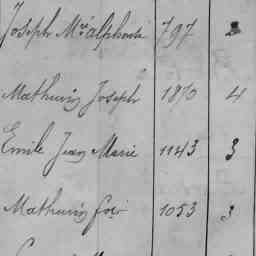 Joseph Mie alphonse 797 2
Mathurin Joseph 1870 4
Emile Jean Marie 1143 3
Mathurin 1053 3